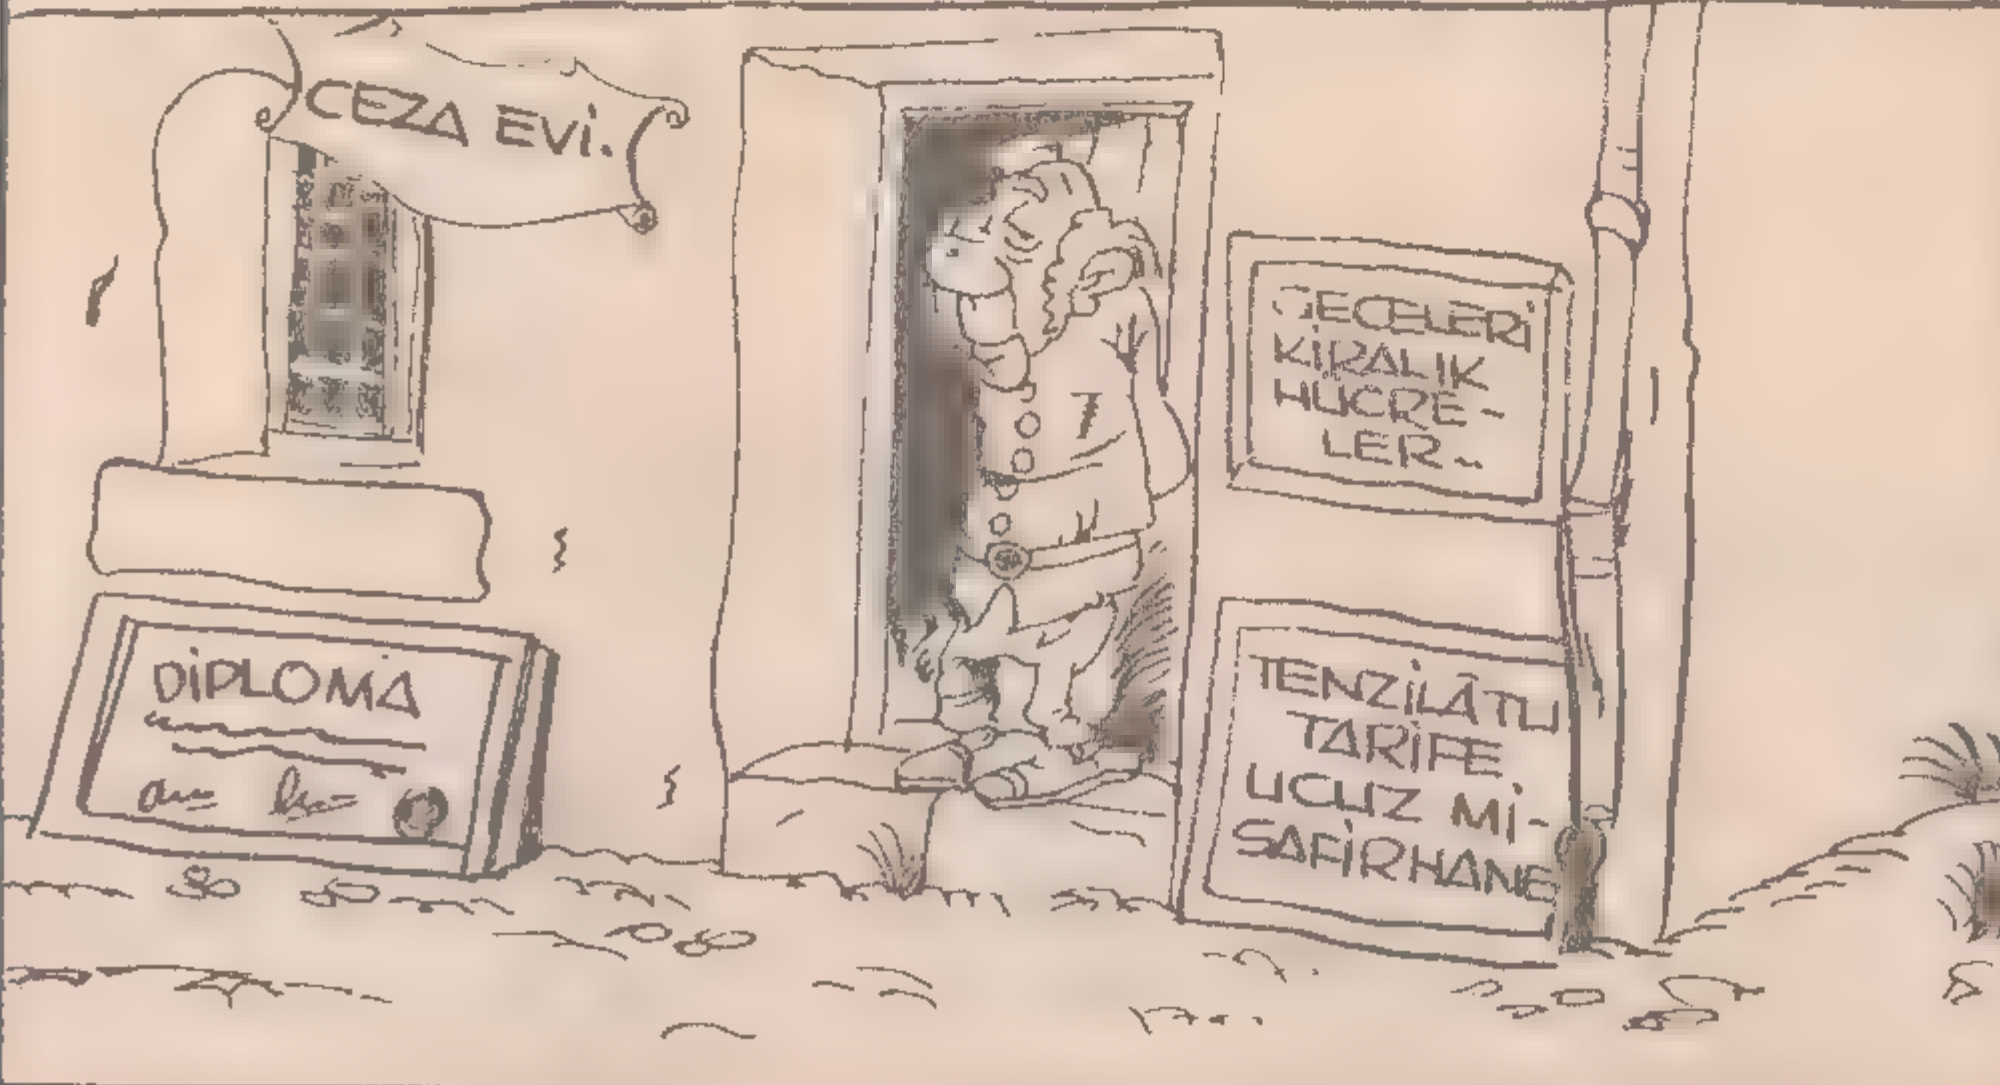 CEZA EVİ.
DİPLOMA
7
GECELERİ
KİRALIK
HÜCRE-
LER-
TENZİLÂTLI
TARİFE
UCUZ Mİ-
SAFİRHANE